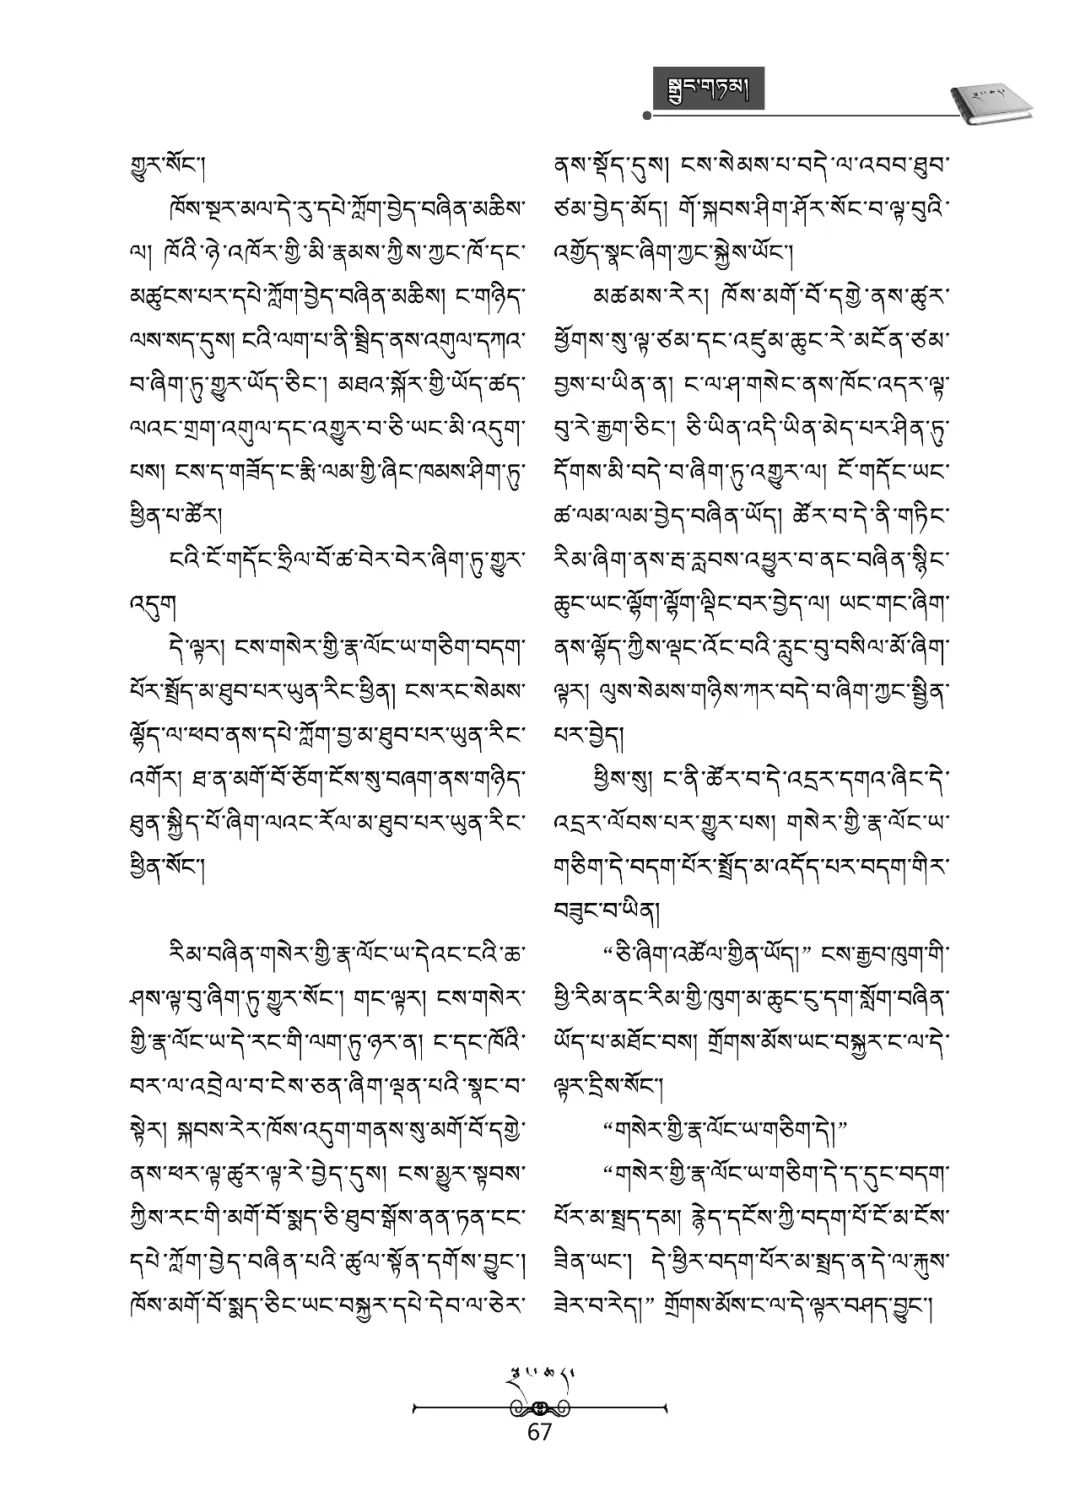 སྒྲུང་གཏམ།
གྱུར་སོང་།
ཁོས་སྔར་མལ་དེ་རུ་དཔེ་ཀློག་བྱེད་བཞིན་མཆིས་
ལ། ཁོའི་ཉེ་འཁོར་གྱི་མི་རྣམས་ཀྱིས་ཀྱང་ཁོ་དང་
མཚུངས་པར་དཔེ་ཀློག་བྱེད་བཞིན་མཆིས། ང་གཉིད་
ལས་སད་དུས། ངའི་ལག་པ་ནི་སྦྲིད་ནས་འགུལ་དཀའ་
བ་ཞིག་ཏུ་གྱུར་ཡོད་ཅིང་། མཐའ་སྐོར་གྱི་ཡོད་ཚད་
ལའང་གྲག་འགུལ་དང་འགྱུར་བ་ཅི་ཡང་མི་འདུག་
པས། ངས་ད་གཟོད་ང་རྨི་ལམ་གྱི་ཞིང་ཁམས་ཤིག་ཏུ་
ཕྱིན་པ་ཚོར།
ངའི་ངོ་གདོང་ཧྲིལ་བོ་ཚ་བེར་བེར་ཞིག་ཏུ་གྱུར་
འདུག
དེ་ལྟར། ངས་གསེར་གྱི་རྣ་ལོང་ཡ་གཅིག་བདག་
པོར་སྤྲོད་མ་ཐུབ་པར་ཡུན་རིང་ཕྱིན། ངས་རང་སེམས་
ལྷོད་ལ་ཕབ་ནས་དཔེ་ཀློག་བྱ་མ་ཐུབ་པར་ཡུན་རིང་
འགོར། ཐ་ན་མགོ་བོ་ཅོག་ངོས་སུ་བཞག་ནས་གཉིད་
ཐུན་སྐྱིད་པོ་ཞིག་ལའང་རོལ་མ་ཐུབ་པར་ཡུན་རིང་
ཕྱིན་སོང་།
རིམ་བཞིན་གསེར་གྱི་རྣ་ལོང་ཡ་དེའང་ངའི་ཆ་
ཤས་ལྟ་བུ་ཞིག་ཏུ་གྱུར་སོང་། གང་ལྟར། ངས་གསེར་
གྱི་རྣ་ལོང་ཡ་དེ་རང་གི་ལག་ཏུ་ཉར་ན། ང་དང་ཁོའི་
བར་ལ་འབྲེལ་བ་ངེས་ཅན་ཞིག་ལྡན་པའི་སྣང་བ་
སྟེར། སྐབས་རེར་ཁོས་འདུག་གནས་སུ་མགོ་བོ་དགྱེ་
ནས་ཕར་ལྟ་ཚུར་ལྟ་རེ་བྱེད་དུས། ངས་མྱུར་སྟབས་
ཀྱིས་རང་གི་མགོ་བོ་སྨད་ཅི་ཐུབ་སྒོས་ནན་ཏན་ངང་
དཔེ་ཀློག་བྱེད་བཞིན་པའི་ཚུལ་སྟོན་དགོས་བྱུང་།
ཁོས་མགོ་བོ་སྨད་ཅིང་ཡང་བསྐྱར་དཔེ་དེབ་ལ་ཅེར་
ནས་སྡོད་དུས། ངས་སེམས་པ་བདེ་ལ་འབབ་ཐུབ་
ཙམ་བྱེད་མོད། གོ་སྐབས་ཤིག་ཤོར་སོང་བ་ལྟ་བུའི་
འགྱོད་སྣང་ཞིག་ཀྱང་སྐྱེས་ཡོང་།
མཚམས་རེར། ཁོས་མགོ་བོ་དགྱེ་ནས་ཚུར་
ཕྱོགས་སུ་ལྟ་ཙམ་དང་འཛུམ་ཆུང་རེ་མངོན་ཙམ་
བྱས་པ་ཡིན་ན། ང་ལ་ཤ་གསེང་ནས་ཁོང་འདར་ལྟ་
བུ་རེ་རྒྱག་ཅིང་། ཅི་ཡིན་འདི་ཡིན་མེད་པར་ཤིན་ཏུ་
དོགས་མི་བདེ་བ་ཞིག་ཏུ་འགྱུར་ལ། ངོ་གདོང་ཡང་
ཚ་ལམ་ལམ་བྱེད་བཞིན་ཡོད། ཚོར་བ་དེ་ནི་གཏིང་
རིམ་ཞིག་ནས་རྦ་རླབས་འཕྱུར་བ་ནང་བཞིན་སྙིང་
ཆུང་ཡང་ལྷོག་ལྷོག་ལྡིང་བར་བྱེད་ལ། ཡང་གང་ཞིག་
ནས་ལྷོད་ཀྱིས་ལྡང་འོང་བའི་རླུང་བུ་བསིལ་མོ་ཞིག་
ལྟར། ལུས་སེམས་གཉིས་ཀར་བདེ་བ་ཞིག་ཀྱང་སྦྱིན་
པར་བྱེད།
ཕྱིས་སུ། ང་ནི་ཚོར་བ་དེ་འདྲར་དགའ་ཞིང་དེ་
འདྲར་ལོབས་པར་གྱུར་པས། གསེར་གྱི་རྣ་ལོང་ཡ་
གཅིག་དེ་བདག་པོར་སྤྲོད་མ་འདོད་པར་བདག་གིར་
བཟུང་བ་ཡིན།
“ཅི་ཞིག་འཚོལ་གྱིན་ཡོད།” ངས་རྒྱབ་ཁུག་གི་
ཕྱི་རིམ་ནང་རིམ་གྱི་ཁུག་མ་ཆུང་ངུ་དག་སློག་བཞིན་
ཡོད་པ་མཐོང་བས། གྲོགས་མོས་ཡང་བསྐྱར་ང་ལ་དེ་
ལྟར་དྲིས་སོང་།
“གསེར་གྱི་རྣ་ལོང་ཡ་གཅིག་དེ།”
“གསེར་གྱི་རྣ་ལོང་ཡ་གཅིག་དེ་ད་དུང་བདག་
པོར་མ་སྤྲད་དམ། རྙེད་དངོས་ཀྱི་བདག་པོ་ངོ་མ་ངོས་
ཟིན་ཡང་། དེ་ཕྱིར་བདག་པོར་མ་སྤྲད་ན་དེ་ལ་རྐུས་
ཟེར་བ་རེད།” གྲོགས་མོས་ང་ལ་དེ་ལྟར་བཤད་བྱུང་།
67